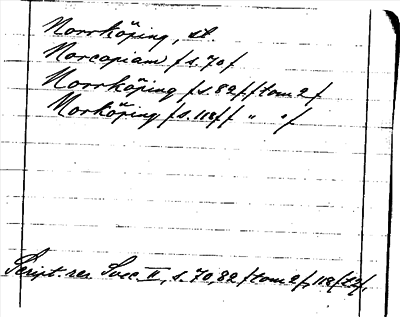 Norrköping, st.
Norcopiam /s. 70/
Norrköping /s. 82/ /tom. 2/
Norköping /s. 118/ / " " /
Script. rer. Svec. II, s. 70, 82 /tom 2/, 118